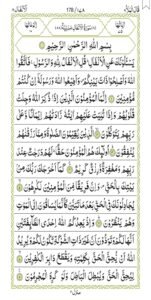 178
بِسْمِ اللّٰهِ الرَّحْمٰنِ الرَّحِيْمِ
يَسْـَٔلُوْنَكَ عَنِ الْاَنْفَالِ قُلِ الْاَنْفَالُ لِلّٰهِ وَالرَّسُوْلِ فَاتَّقُوا
اللّٰهَ وَاَصْلِحُوْا ذَاتَ بَيْنِكُمْ وَاَطِيْعُوا اللّٰهَ وَرَسُوْلَهٗٓ اِنْ كُنْتُمْ
مُّؤْمِنِيْنَ اِنَّمَا الْمُؤْمِنُوْنَ الَّذِيْنَ اِذَا ذُكِرَ اللّٰهُ وَجِلَتْ
قُلُوْبُهُمْ وَاِذَا تُلِيَتْ عَلَيْهِمْ اٰيٰتُهٗ زَادَتْهُمْ اِيْمَانًا وَّعَلٰى
رَبِّهِمْ يَتَوَكَّلُوْنَ الَّذِيْنَ يُقِيْمُوْنَ الصَّلٰوةَ وَمِمَّا رَزَقْنٰهُمْ
يُنْفِقُوْنَ اُولٰٓئِكَ هُمُ الْمُؤْمِنُوْنَ حَقًّا لَهُمْ دَرَجٰتٌ عِنْدَ
رَبِّهِمْ وَمَغْفِرَةٌ وَّرِزْقٌ كَرِيْمٌ كَمَآ اَخْرَجَكَ رَبُّكَ مِنْۢ
بَيْتِكَ بِالْحَقِّ وَاِنَّ فَرِيْقًا مِّنَ الْمُؤْمِنِيْنَ لَكٰرِهُوْنَ
يُجَادِلُوْنَكَ فِي الْحَقِّ بَعْدَ مَا تَبَيَّنَ كَاَنَّمَا يُسَاقُوْنَ اِلَى الْمَوْتِ
وَهُمْ يَنْظُرُوْنَ وَاِذْ يَعِدُكُمُ اللّٰهُ اِحْدَى الطَّآئِفَتَيْنِ
اَنَّهَا لَكُمْ وَتَوَدُّوْنَ اَنَّ غَيْرَ ذَاتِ الشَّوْكَةِ تَكُوْنُ لَكُمْ وَيُرِيْدُ
اللّٰهُ اَنْ يُّحِقَّ الْحَقَّ بِكَلِمٰتِهٖ وَيَقْطَعَ دَابِرَ الْكٰفِرِيْنَ
لِيُحِقَّ الْحَقَّ وَيُبْطِلَ الْبَاطِلَ وَلَوْ كَرِهَ الْمُجْرِمُوْنَ
منزل ٢